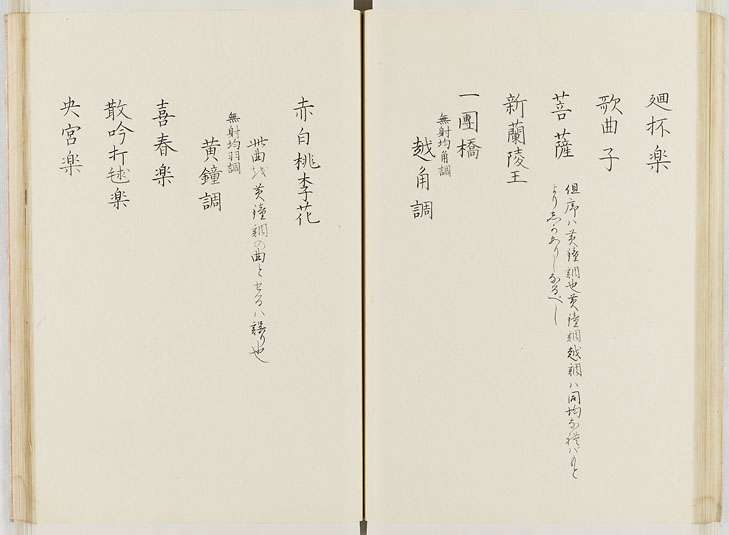 廻杯楽
歌曲子
菩薩
但序ハ黄鐘調也黄鐘調越調ハ同均なれバもと
よりしかありしなるべし
新蘭陵王
一團橋
無射均角調
越角調
赤白桃李花
此曲を黄鐘調の曲とせるハ誤り也
無射均羽調
黄鐘調
喜春楽
散吟打毬楽
央宮楽